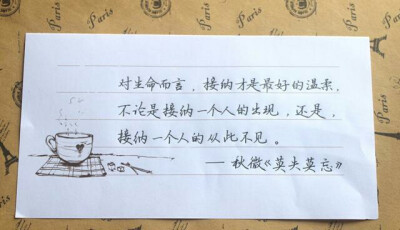 对生命而言，接纳才是最好的温柔，
不论是接纳一个人的出现，还是，
接纳一个人的从此不见。
——秋微《莫失莫忘》
Paris
Paris
Paris
Paris